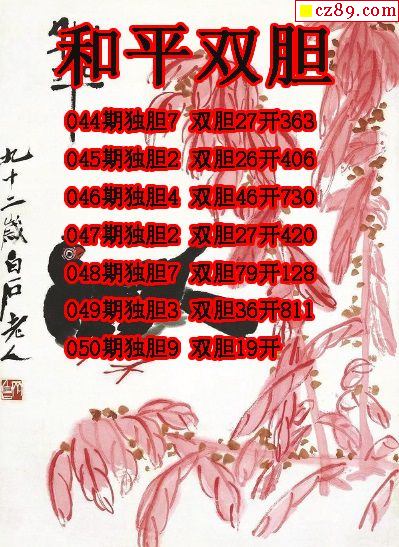 cz89.com
和平双胆
044期独胆7 双胆27开363
045期独胆2 双胆26开406
046期独胆4 双胆46开730
047期独胆2 双胆27开420
048期独胆7 双胆79开128
049期独胆3 双胆36开811
050期独胆9 双胆19开
九十二岁白石老人